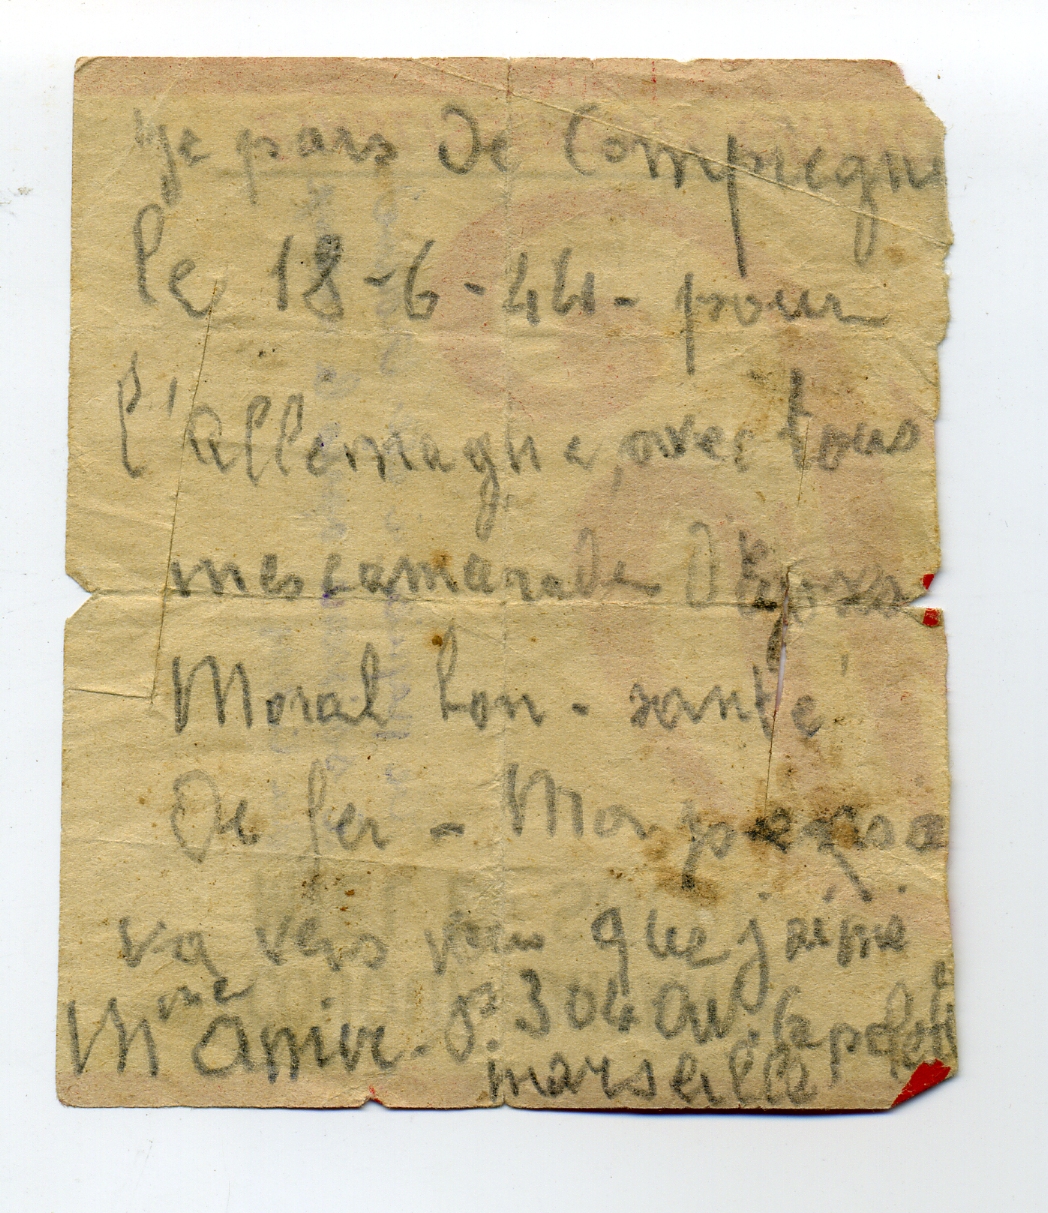 Je pars de Compiegne
le 18-6-44- pour
l'allemagne, avec tous
mes camarade d'Eysses
Moral bon - santé
de fer - Mon
va vers vous que j'aime
Mme Arrive. 304 av.
marseille